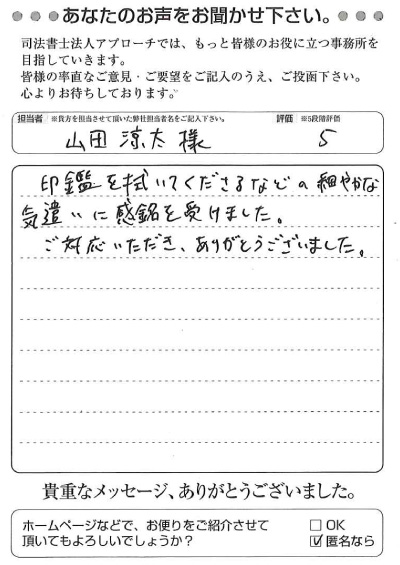 ●●●あなたのお声をお聞かせ下さい。●●●
司法書士法人アプローチでは、もっと皆様のお役に立つ事務所を
目指していきます。
皆様の率直なご意見・ご要望をご記入のうえ、ご投函下さい。
心よりお待ちしております。
担当者 ※貴方を担当させて頂いた弊社担当者名をご記入下さい。 評価 ※5段階評価
山田 涼太 様 5
印鑑を拭いてくださるなどの細やかな
気遣いに感銘を受けました。
ご対応いただき、ありがとうございました。
貴重なメッセージ、ありがとうございました。
ホームページなどで、お便りをご紹介させて
頂いてもよろしいでしょうか？
□ OK
☑ 匿名なら